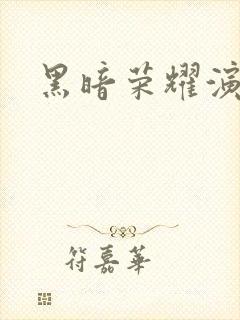 黑暗荣耀演
符嘉华